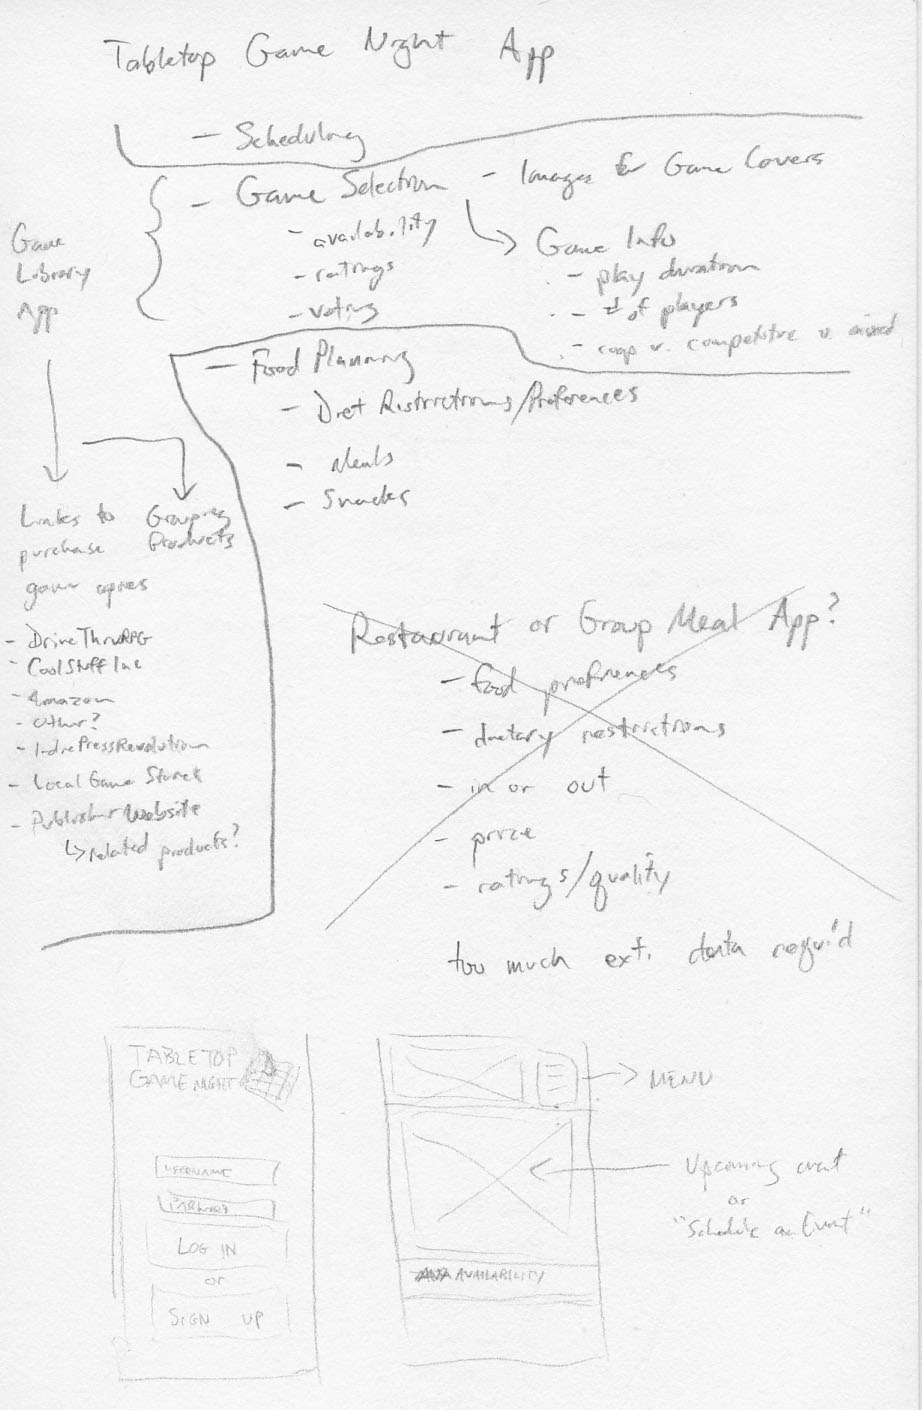 Tabletop Game Night App
- Scheduling
- Game Selection
- availability
- ratings
- voting
- Images for Game Covers
Game Info
- play duration
- # of players
- coop v. competitive v. mixed
Game
Library
App
- Food Planning
- Diet Restrictions/Preferences
- Meals
- Snacks
Links to
purchase
game copies
Grouping
Products
- DriveThruRPG
- CoolStuffInc
- Amazon
- other?
- IndiePressRevolution
- Local Game Stores
- Publisher Website
related products?
Restaurant or Group Meal App?
- food preferences
- dietary restrictions
- in or out
- price
- ratings/quality
too much ext. data requ'd
TABLETOP
GAME NIGHT
USERNAME
PASSWORD
LOG IN
or
SIGN UP
MENU
Upcoming event
or
"Schedule an Event"
AVAILABILITY